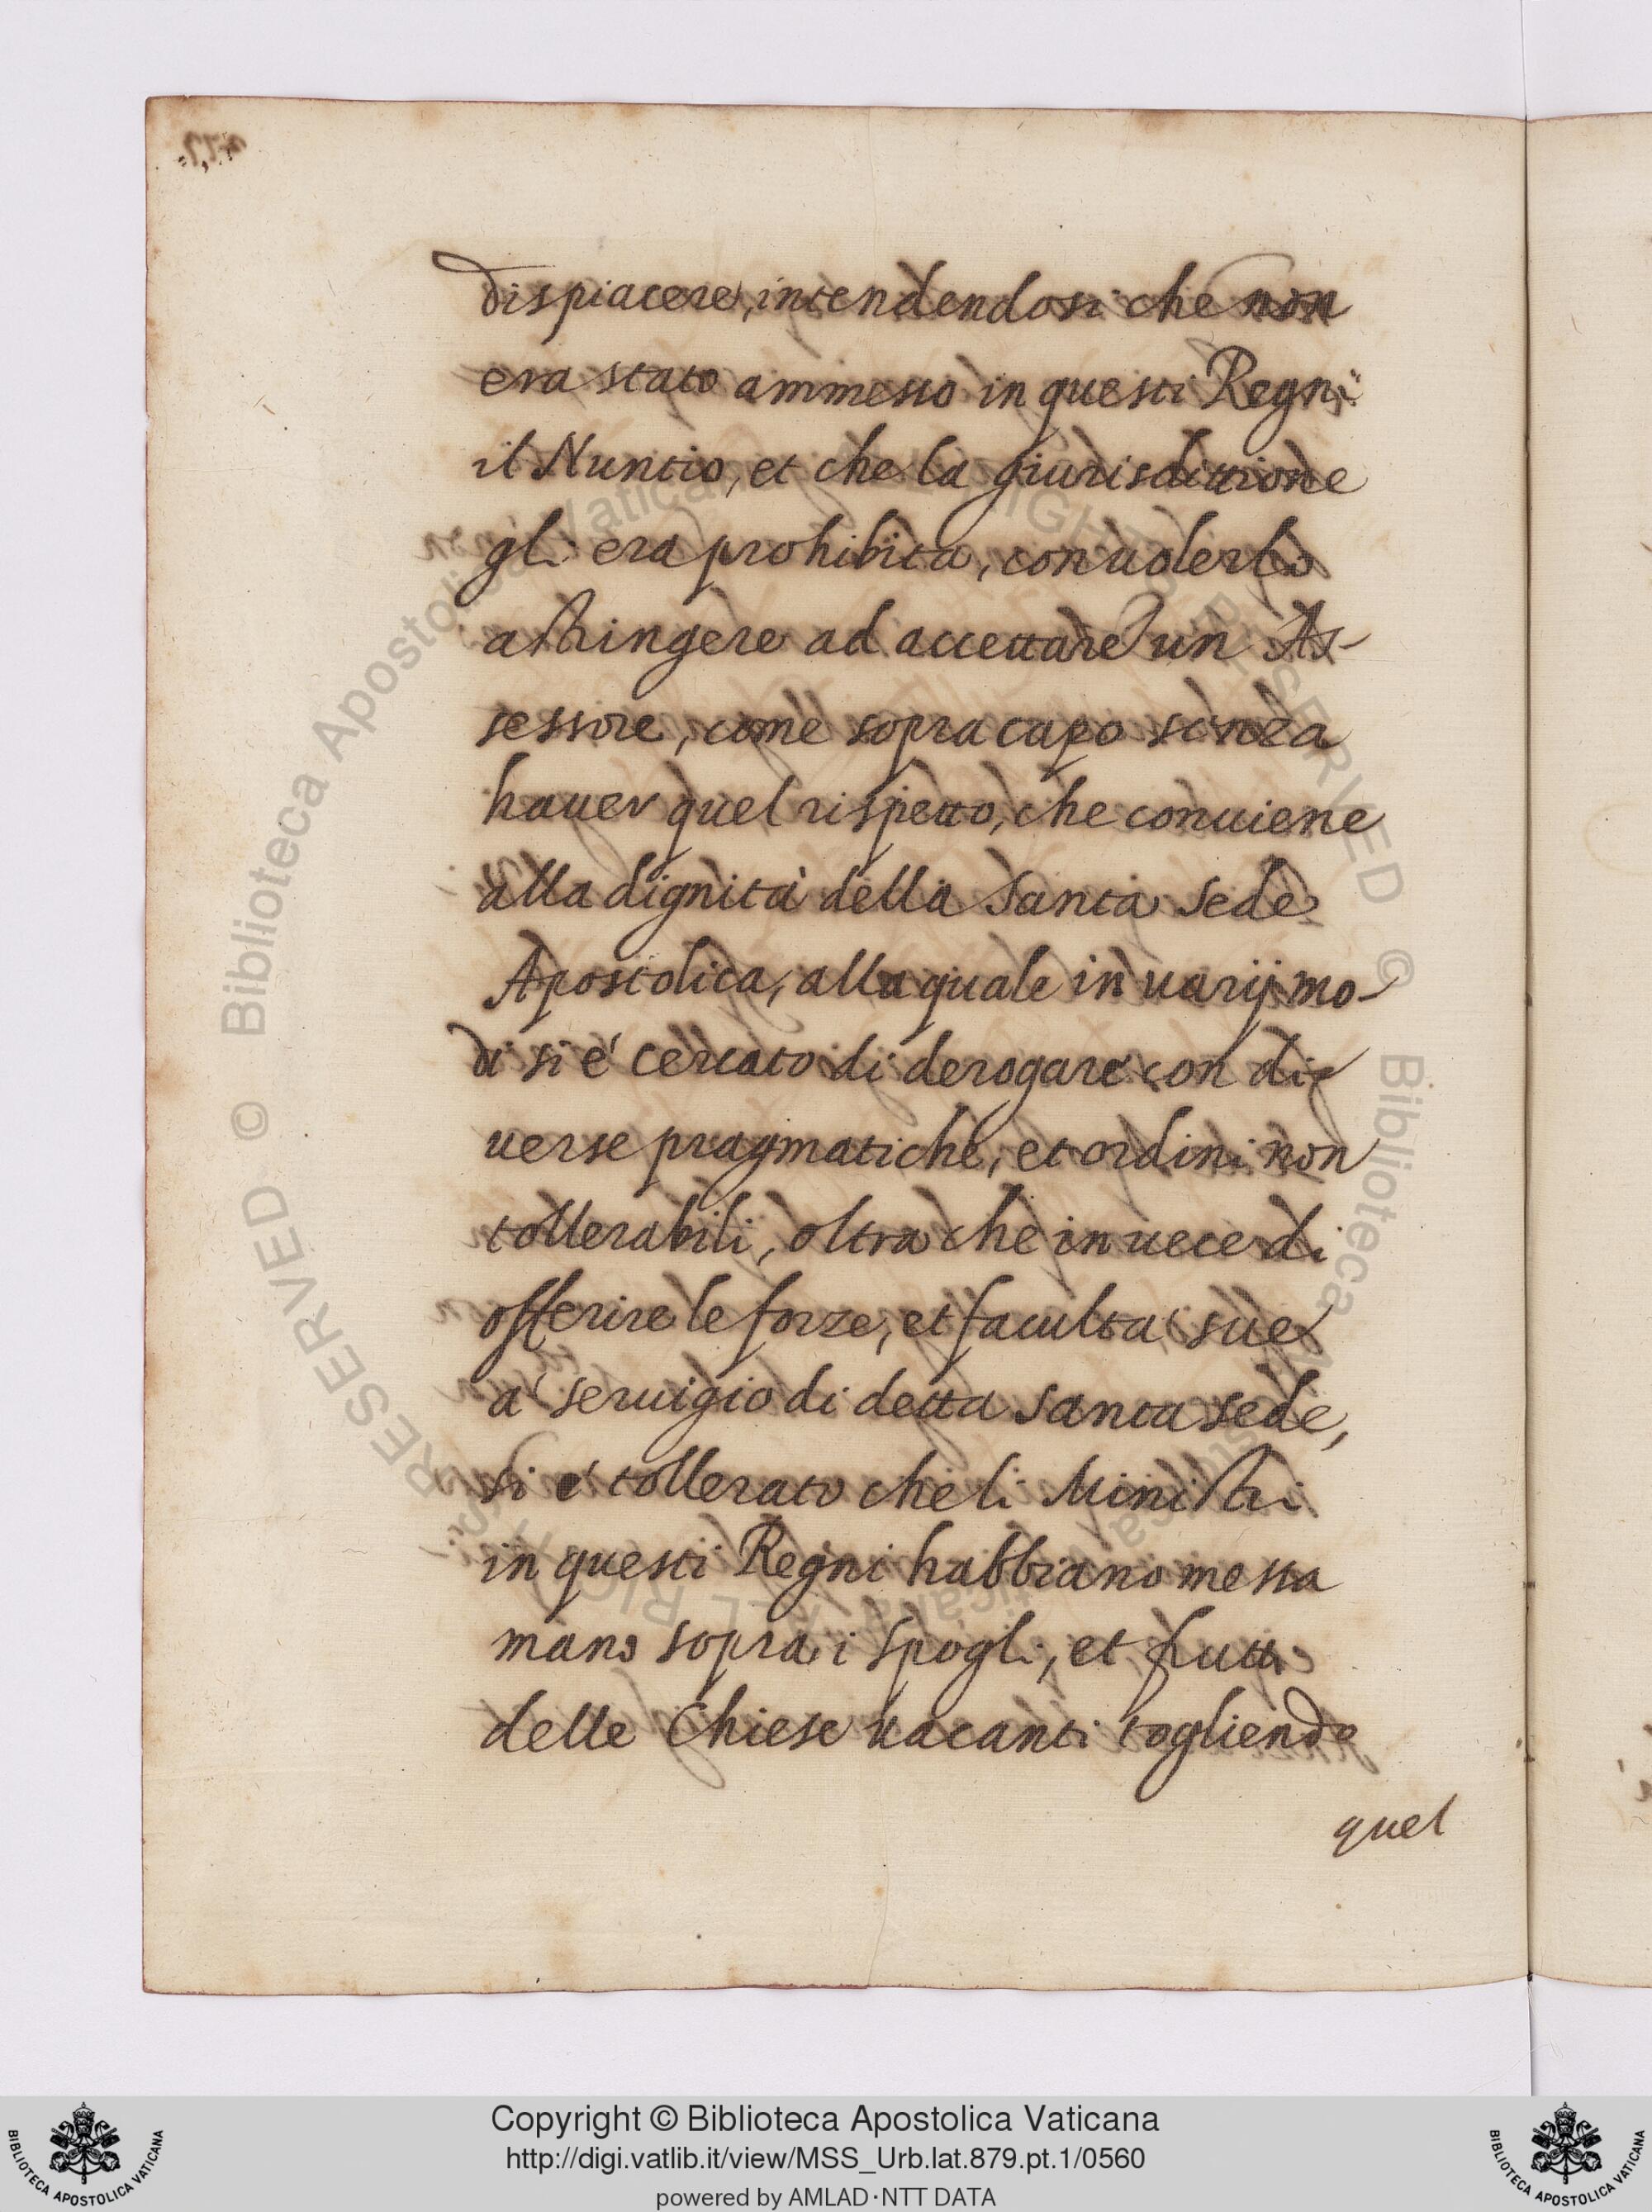 dispiacere, intendendosi che non
era stato ammesso in questi Regni
il Nuntio, et che la giurisdittione
gli era prohibita, con uolerlo
astringere ad accettare un As-
sessore, come sopracapo senza
hauer quel rispetto, che conuiene
alla dignità della Santa sede
Apostolica, alla quale in uarij mo-
di si è cercato di derogare con di-
uerse pragmatiche, et ordini non
tollerabili, oltra che in uece di
offerire le forze, et facultà sue
à seruigio di detta santa sede,
si è tollerato che li Ministri
in questi Regni habbiano messa
mano sopra i spogli, et frutti
delle Chiese uacanti togliendo
quel
© Biblioteca Apostolica Vaticana ALL RIGHTS RESERVED
© Biblioteca Apostolica Vaticana ALL RIGHTS RESERVED
Copyright © Biblioteca Apostolica Vaticana
http://digi.vatlib.it/view/MSS_Urb.lat.879.pt.1/0560
powered by AMLAD·NTT DATA
BIBLIOTECA APOSTOLICA VATICANA
BIBLIOTECA APOSTOLICA VATICANA